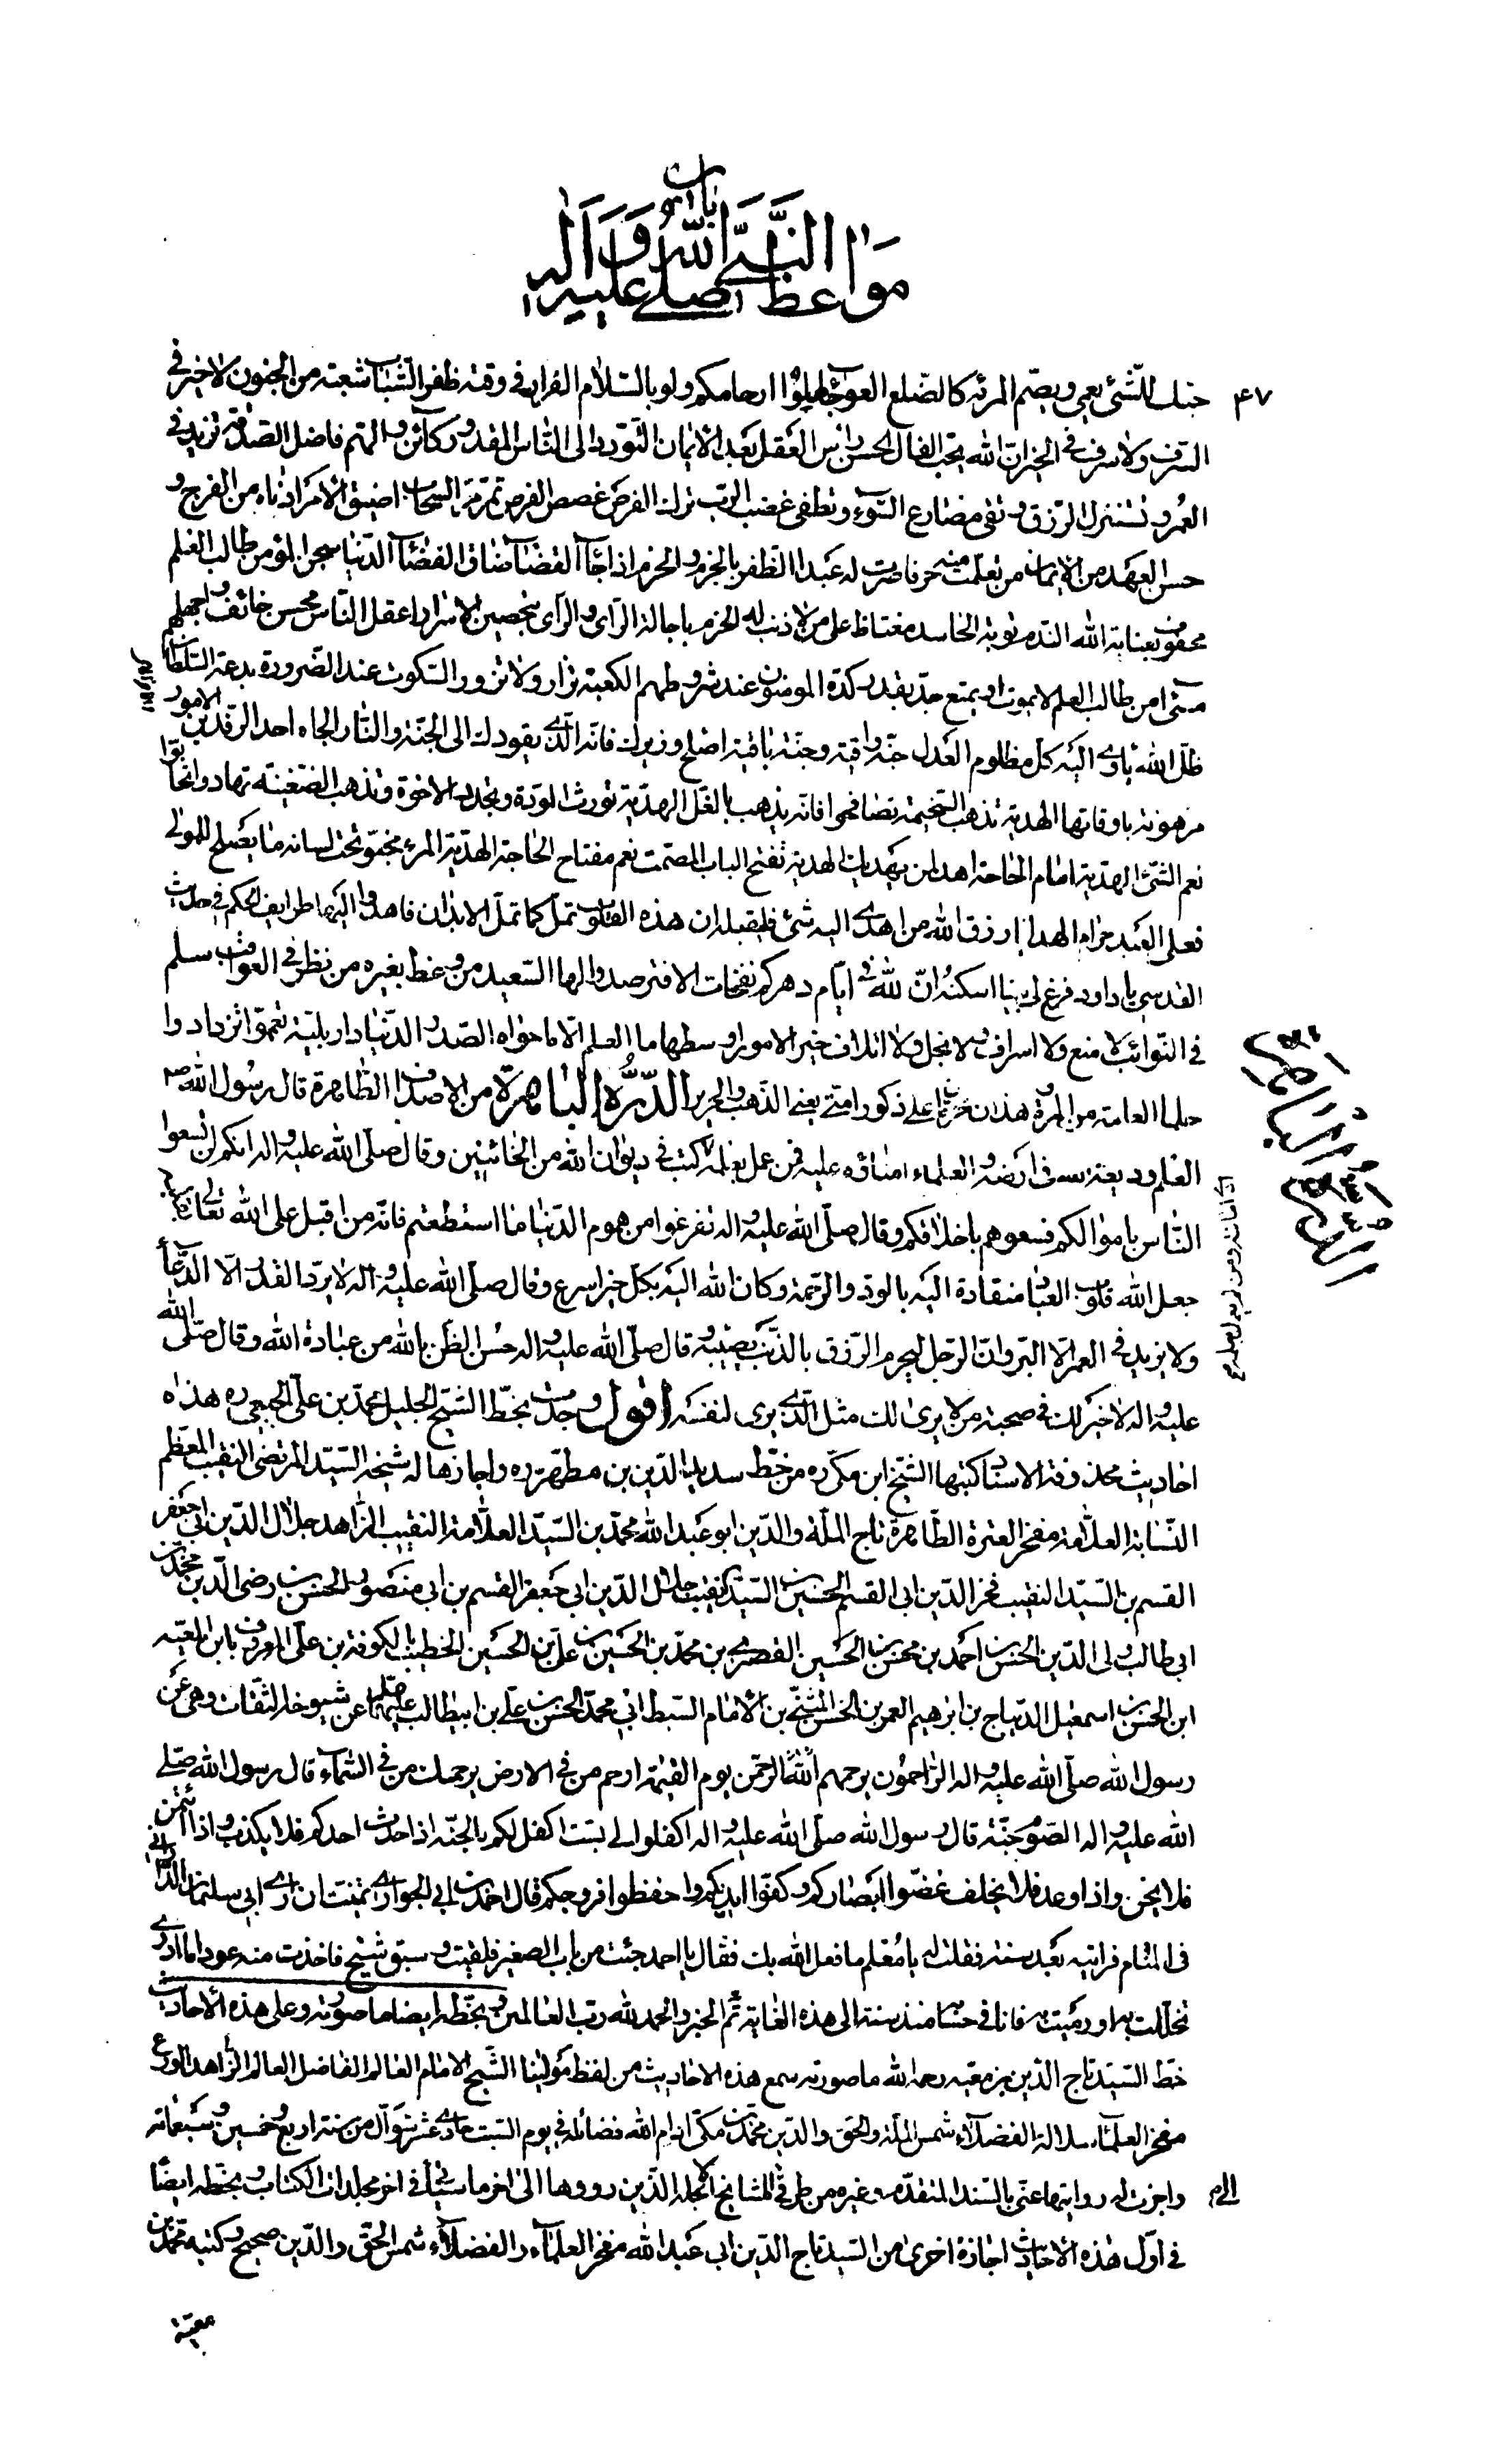 باب
مواعظ النبي صلى الله عليه وآله
۴۷
حبك للشئ يعمي ويصم المرئة كالضلع العوجاء صلوا ارحامكم ولو بالسلام الفرار في وقته ظفر الشباب شعبة من الجنون لا خير في
السرف ولا سرف في الخير ان الله يحب الفال الحسن راس العقل بعد الايمان التودد الى الناس المقدور كائن والهم فاضل الصدقة تزيد في
العمر وتستنزل الرزق وتقي مصارع السوء وتطفئ غضب الرب ترك الفرص غصص الفرص تمر مر السحاب اضيق الامر ادناه من الفرج و
حسن العهد من الايمان من تعلمت منه حرفا صرت له عبدا الظفر بالجزم والحزم اذا جاء القضاء ضاق الفضاء الدنيا سجن المؤمن طالب العلم
محفوف بعناية الله الندم توبة الحاسد مغتاظ على من لا ذنب له الحزم باجالة الراى والراى بتحصين الاسرار اعقل الناس محسن خائف واجهلهم
مسئ امن طالب العلم لا يموت او يمتع جده بقدر كده المومنون عند شروطهم الكعبة تزار ولا تزور السكوت عند الضرورة بدعة السلطان
ظل الله ياوي اليه كل مظلوم العدل جنة واقية وجنة باقية اصلح وزيرك فانه الذي يقودك الى الجنة والنار الجاه احد الرفدين الامور
مرهونة باوقاتها الهدية تذهب السخيمة تصافحوا فانه يذهب بالغل الهدية تورث المودة وتجدد الاخوة وتذهب الضغينة تهادوا تحابوا
نعم الشئ الهدية امام الحاجة اهد لمن يهديك الهدية تفتح الباب المصمت نعم مفتاح الحاجة الهدية المرء مخبو تحت لسانه ما يصلح للمولى
فعلى العبد حرام الهدايا رزق الله من اهدي اليه شئ فليقبله ان هذه القلوب تمل كما تمل الابدان فاهدوا اليها طرايف الحكم في حديث
القدسي يا داود فرغ لي بيتا اسكنه ان لله في ايام دهركم نفحات الا فترصدوا لها السعيد من وعظ بغيره من نظر في العواقب سلم
في النوائب لا منع ولا اسراف ولا بخل ولا اتلاف خير الامور اوسطها ما العلم الا ما حواه الصدر الدنيا دار بلية تعمموا تزدادوا
حلما العامة من المروة هذان محرمان على ذكور امتي يعني الذهب والحرير الدرة الباهرة من الاصداف الطاهرة قال رسول الله ص
العلم وديعة الله في ارضه والعلماء امناؤه عليه فمن عمل بعلمه كتب في ديوان الله من الخائنين وقال صلى الله عليه واله انكم لن تسعوا
الناس باموالكم فسعوهم باخلاقكم وقال صلى الله عليه واله تفرغوا من هموم الدنيا ما استطعتم فانه من اقبل على الله تعالى
جعل الله قلوب العباد منقادة اليه بالود والرحمة وكان الله اليه بكل خير اسرع وقال صلى الله عليه واله لا يرد القدر الا الدعاء
ولا يزيد في العمر الا البر وان الرجل ليحرم الرزق بالذنب يصيبه وقال صلى الله عليه واله حسن الظن بالله من عبادة الله وقال صلى الله
عليه واله لا خير لك في صحبة من لا يرى لك مثل الذي يرى لنفسه اقول وجدت بخط الشيخ الجليل محمد بن علي الجبعي ره هذه
احاديث محذوفة الاسناد كتبها الشيخ ابن مكي ره من خط سديد الدين بن مطهر ره واجازها له شيخه السيد المرتضى النقيب المعظم
النسابة العلامة مفخر العترة الطاهرة تاج الملة والدين ابو عبد الله محمد بن السيد العلامة النقيب الزاهد جلال الدين ابي جعفر
القسم بن السيد النقيب فخر الدين ابي القسم الحسين بن السيد النقيب جلال الدين ابي جعفر القسم بن ابي منصور الحسن بن رضى الدين محمد بن
ابي طالب ولى الدين الحسن بن احمد بن محسن بن الحسين القصري بن محمد بن الحسين بن علي بن الحسين الخطيب بالكوفة بن علي المعروف بابن المعية
ابن الحسن بن اسمعيل الديباج بن ابرهيم الغمر بن الحسن المثنى بن الامام السبط ابي محمد الحسن بن علي بن ابيطالب عليهما عن شيوخه الثقات وهي عن
رسول الله صلى الله عليه واله الراحمون يرحمهم الله الرحمن يوم القيمة ارحم من في الارض يرحمك من في السماء قال رسول الله صلى
الله عليه واله الصوم جنة قال رسول الله صلى الله عليه واله اكفلوا لي بست اكفل لكم بالجنة اذا حدث احدكم فلا يكذب واذا ائتمن
فلا يخن واذا وعد فلا يخلف غضوا ابصاركم وكفوا ايديكم واحفظوا فروجكم قال احمد بن ابي الحواري تمنيت ان ارى ابي سليمان الداراني
في المنام فرايته بعد سنة فقلت له يا معلم ما فعل الله بك فقال يا احمد جئت من باب الصغير فلقيت وسق شيح فاخذت منه عودا ما ادري
تخللت به او رميت به فانا في حسابه منذ سنة الى هذه الغاية تم الخبر والحمد لله رب العالمين وبخطه ايضا ما صورته وعلى هذه الاحاديث
خط السيد تاج الدين بن معية رحمه الله ما صورته سمع هذه الاحاديث من لفظ مولينا الشيخ الامام العالم الفاضل العالم الزاهد الورع
مفخر العلماء سلالة الفضلاء شمس الملة والحق والدين محمد بن مكي ادام الله فضائله في يوم السبت حادي عشر شوال من سنة اربع وخمسين وسبعمائة
واجزت له روايتها عني بالسند المتقدم وغيره من طرقي المشايخ الاجلة الذين رووها الى اخر ما سيأتي في اخر مجلدات الكتاب وبخطه ايضا
في اول هذه الاحاديث اجازة اخرى من السيد تاج الدين ابي عبد الله مفخر العلماء والفضلاء شمس الحق والدين صحيح وكتبه محمد بن
معية